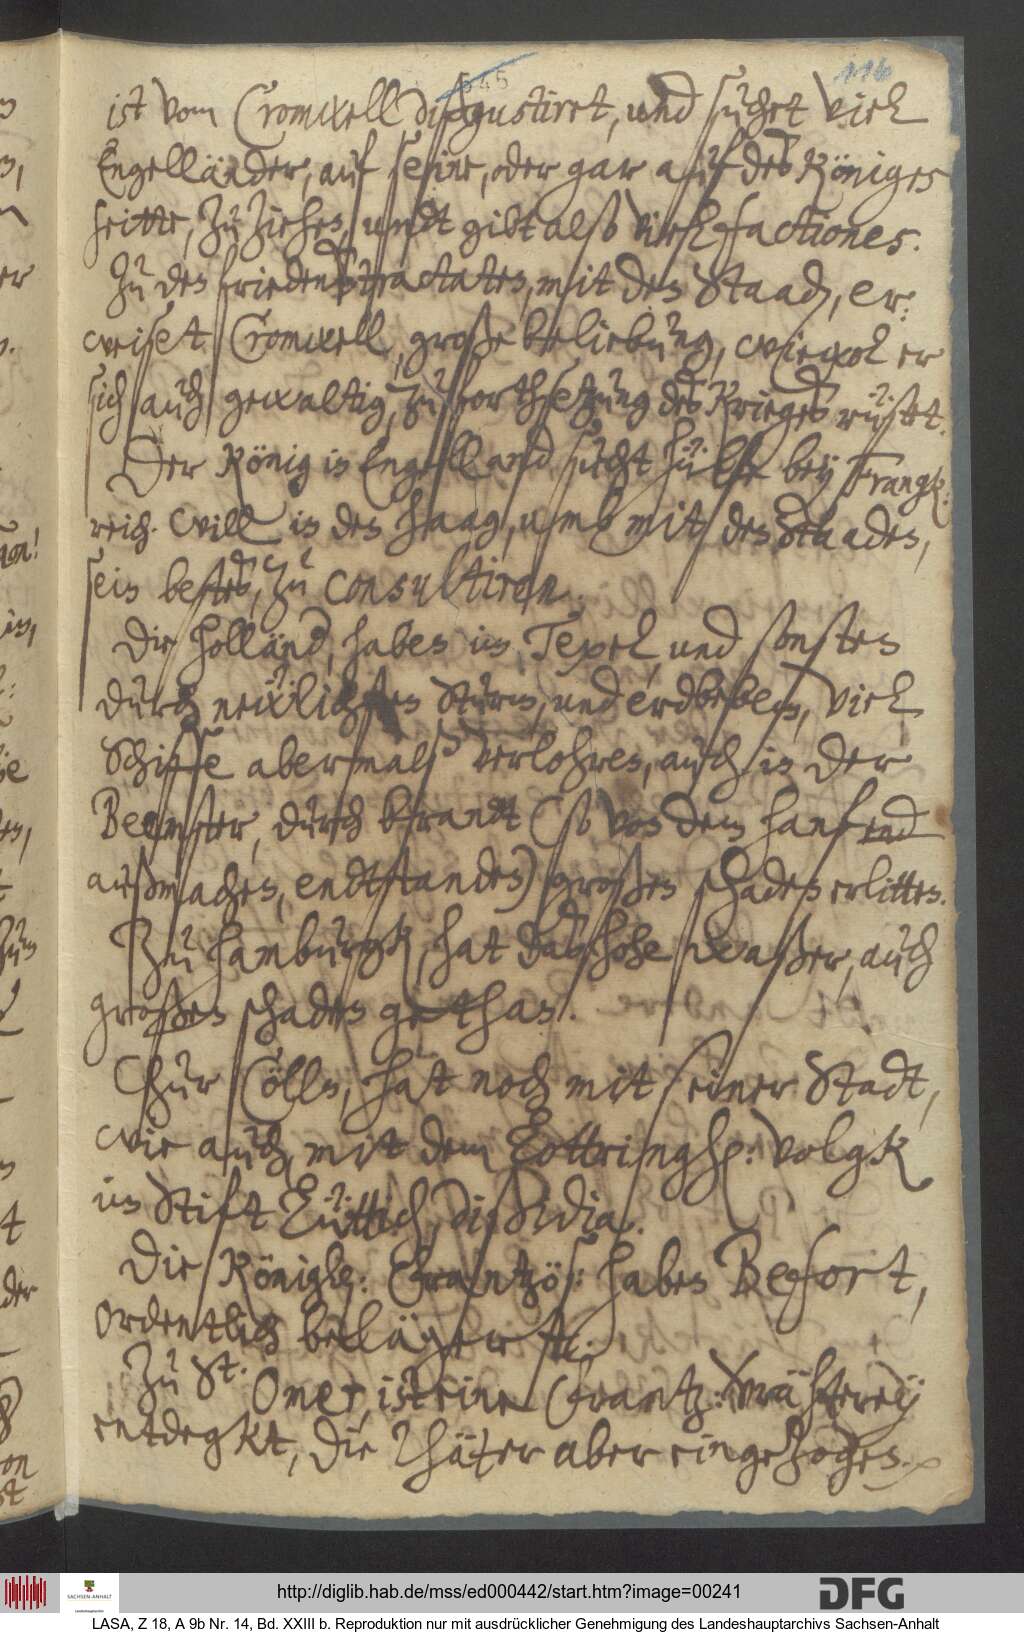 545
116
ist vom Cromwell disgustiret, und suchet viel
Engelländer, auf seine, oder gar auf des Königes
seitte, zu ziehen, undt gibt also viel factiones.
Zu den friedenstractaten, mit den Staaden, er-
weiset Cromwell, große beliebung, wiewol er
sich auch gewaltig, zu forthsetzung des Krieges rüstet.
Der König in Engellandt sucht hülfe bey Frangk-
reich. Will in den Haag, umb mit den Staaden,
sein bestes, zu consultiren.
Die Holländ, haben im Texel, und sonsten
durch neẅlichsten Sturm, und erdbeben, viel
Schiffe abermalß verlohren, auch in der
Beemster, durch brandt (so von dem hanf
außmachen, endtstanden) großen schaden erlitten.
Zu Hamburgk, hat das hohe waßer, auch
großen schaden gethan.
Chur Cölln, hat noch mit seiner Stadt,
wie auch, mit dem Lottringh: volgk
im Stift Lüttich, dißidia.
Die Königh: Frantzös: haben Befort,
ordentlich belägert.
Zu St. Omer, ist eine Frantz: Verrähterey
entdegkt, die Thäter aber eingezogen.
http://diglib.hab.de/mss/ed000442/start.htm?image=00241
SACHSEN-ANHALT
DFG
LASA, Z 18, A 9b Nr. 14, Bd. XXIII b. Reproduktion nur mit ausdrücklicher Genehmigung des Landeshauptarchivs Sachsen-Anhalt